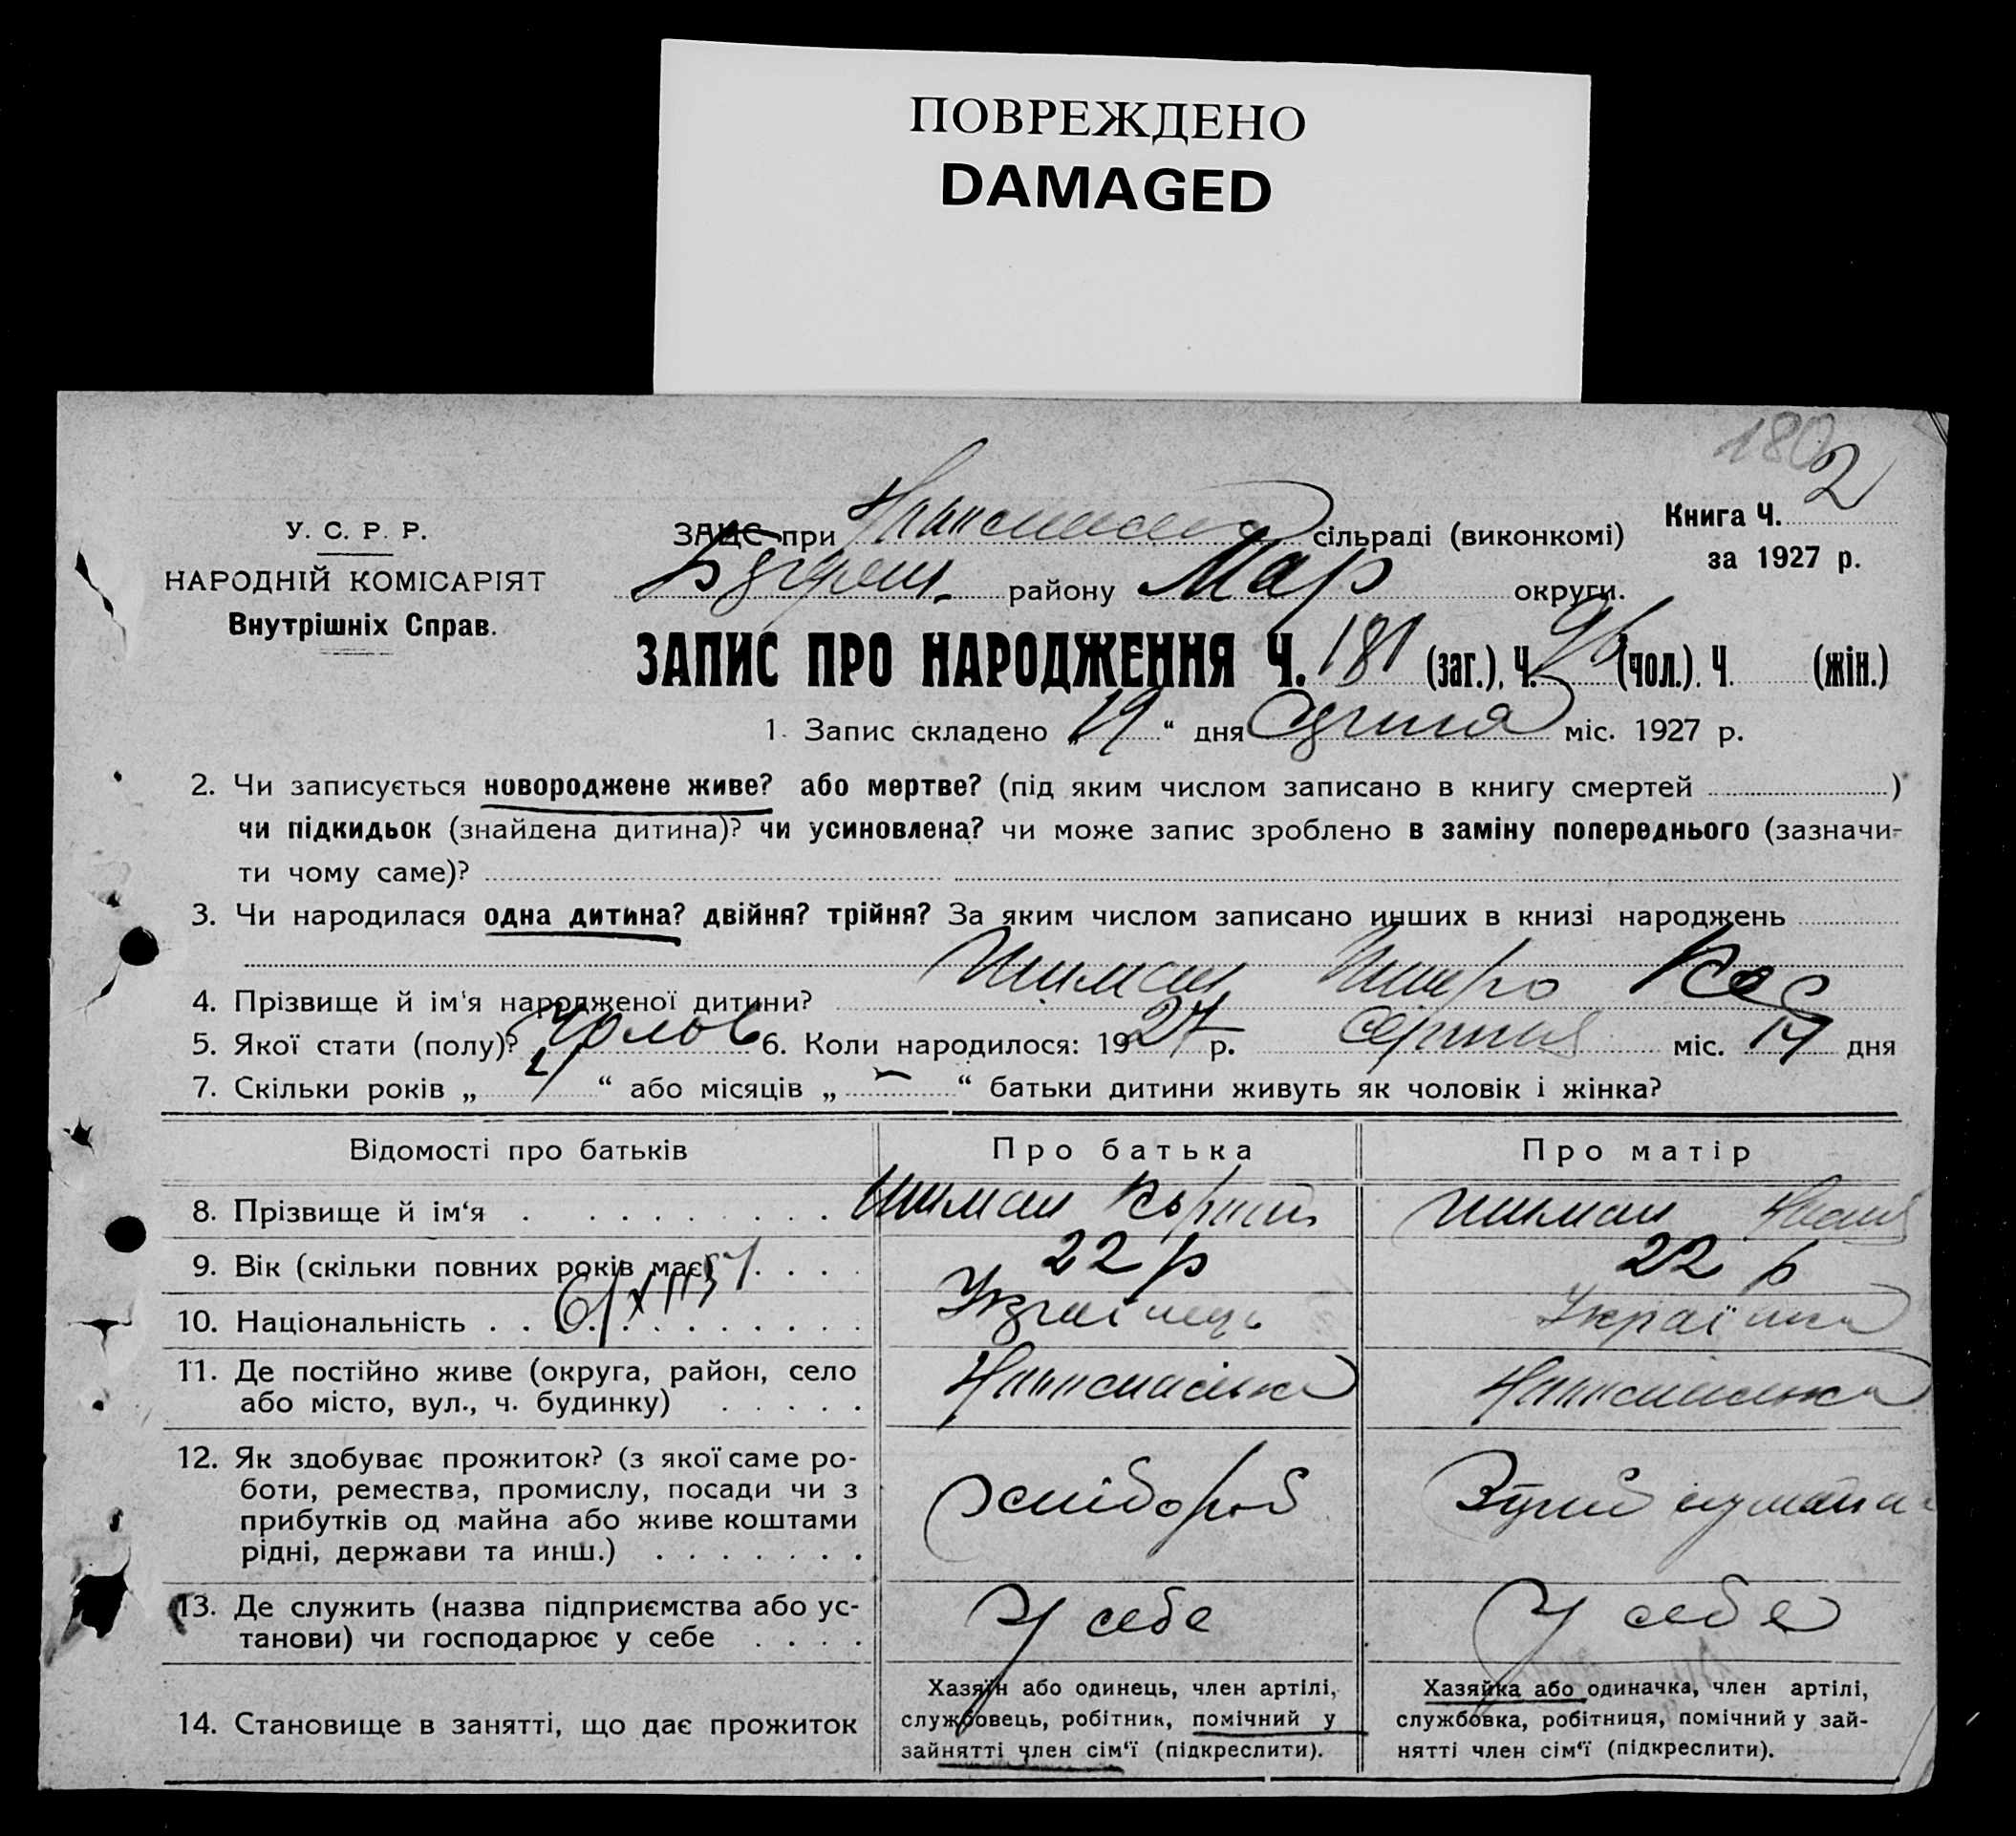 ПОВРЕЖДЕНО
DAMAGED
180
2
У. С. Р. Р.
НАРОДНІЙ КОМІСАРІЯТ
Внутрішніх Справ.
ЗАЦС при сільраді (виконкомі)
району Мар округи.
Книга Ч. 2
за 1927 р.
ЗАПИС ПРО НАРОДЖЕННЯ Ч. 181 (заг.), Ч. 96 (чол.). Ч. (жін.)
1. Запис складено „19“ дня Серпня міс. 1927 р.
2. Чи записується новороджене живе? або мертве? (під яким числом записано в книгу смертей )
чи підкидьок (знайдена дитина)? чи усиновлена? чи може запис зроблено в заміну попереднього (зазначи-
ти чому саме)?
3. Чи народилася одна дитина? двійня? трійня? За яким числом записано инших в книзі народжень
4. Прізвище й ім'я народженої дитини? Шиман
5. Якої стати (полу)? Чолов 6. Коли народилося: 1927 р. серпня міс. 14 дня
7. Скільки років „ “ або місяців „ — “ батьки дитини живуть як чоловік і жінка?
Відомості про батьків Про батька Про матір
8. Прізвище й ім‘я Шиман Шиман
9. Вік (скільки повних років має) 22 р 22 р
10. Національність Українець Українка
11. Де постійно живе (округа, район, село
або місто, вул., ч. будинку)
12. Як здобуває прожиток? (з якої саме ро-
боти, ремества, промислу, посади чи з
прибутків од майна або живе коштами
рідні, держави та инш.) Хлібороб
13. Де служить (назва підприємства або ус-
танови) чи господарює у себе У себе У себе
14. Становище в занятті, що дає прожиток
Хазяїн або одинець, член артілі,
службовець, робітник, помічний у
зайнятті член сім‘ї (підкреслити).
Хазяйка або одиначка, член артілі,
службовка, робітниця, помічний у зай-
нятті член сім‘ї (підкреслити).